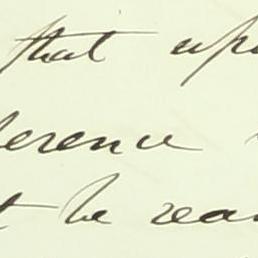 that upo
ference
t be rea